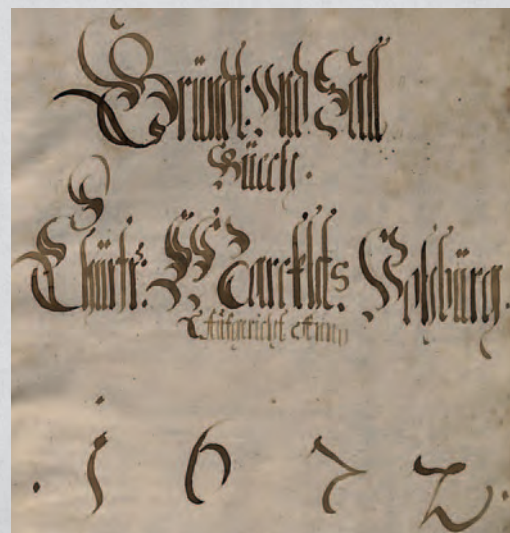 Gründt: Vnd Sall
Büech.
Chürfr: Marckhts Vohbürg.
Aüfgericht Anno
. 1 6 7 2.